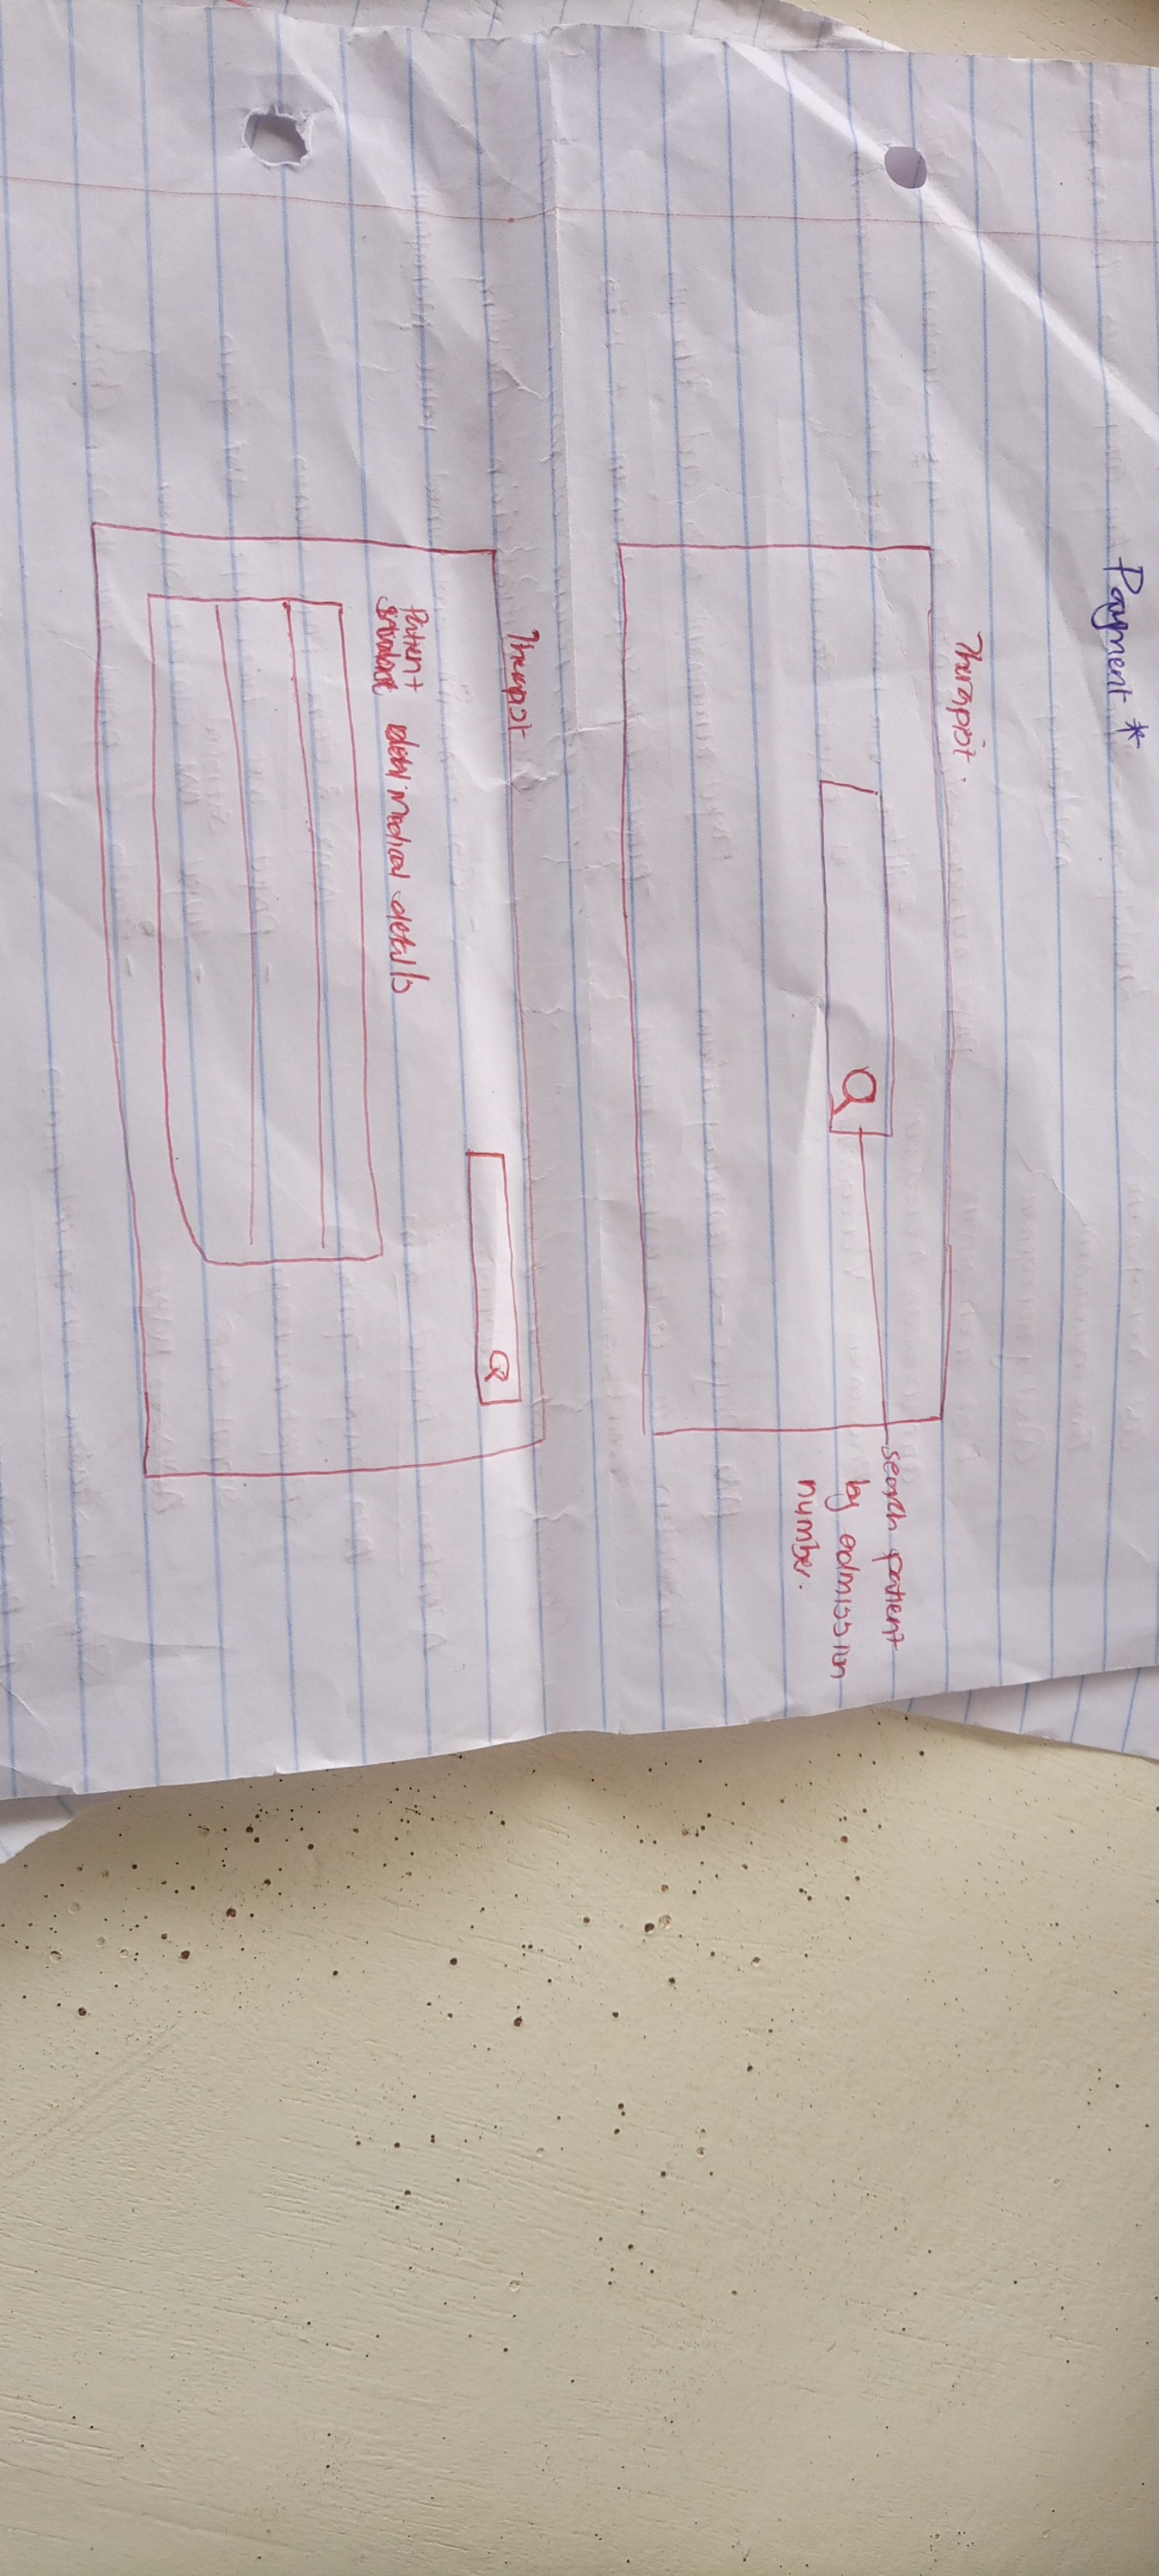 Payment *
Therapist.
search patient
by admission
number.
Therapist
Patient medical details